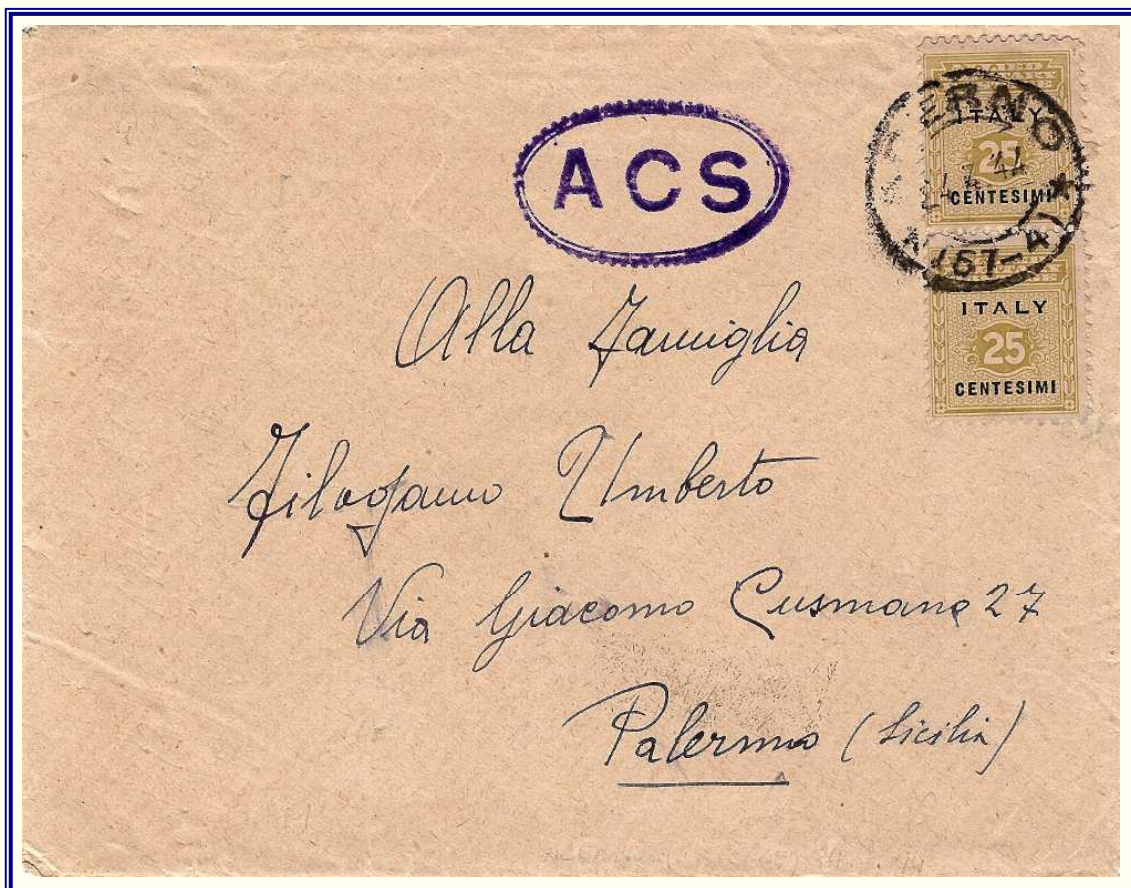 ITALY
25
CENTESIMI
ACS
44
(67-4)
ITALY
25
CENTESIMI
Alla Famiglia
Filogamo Umberto
Via Giacomo Cusmano 27
Palermo (Sicilia)